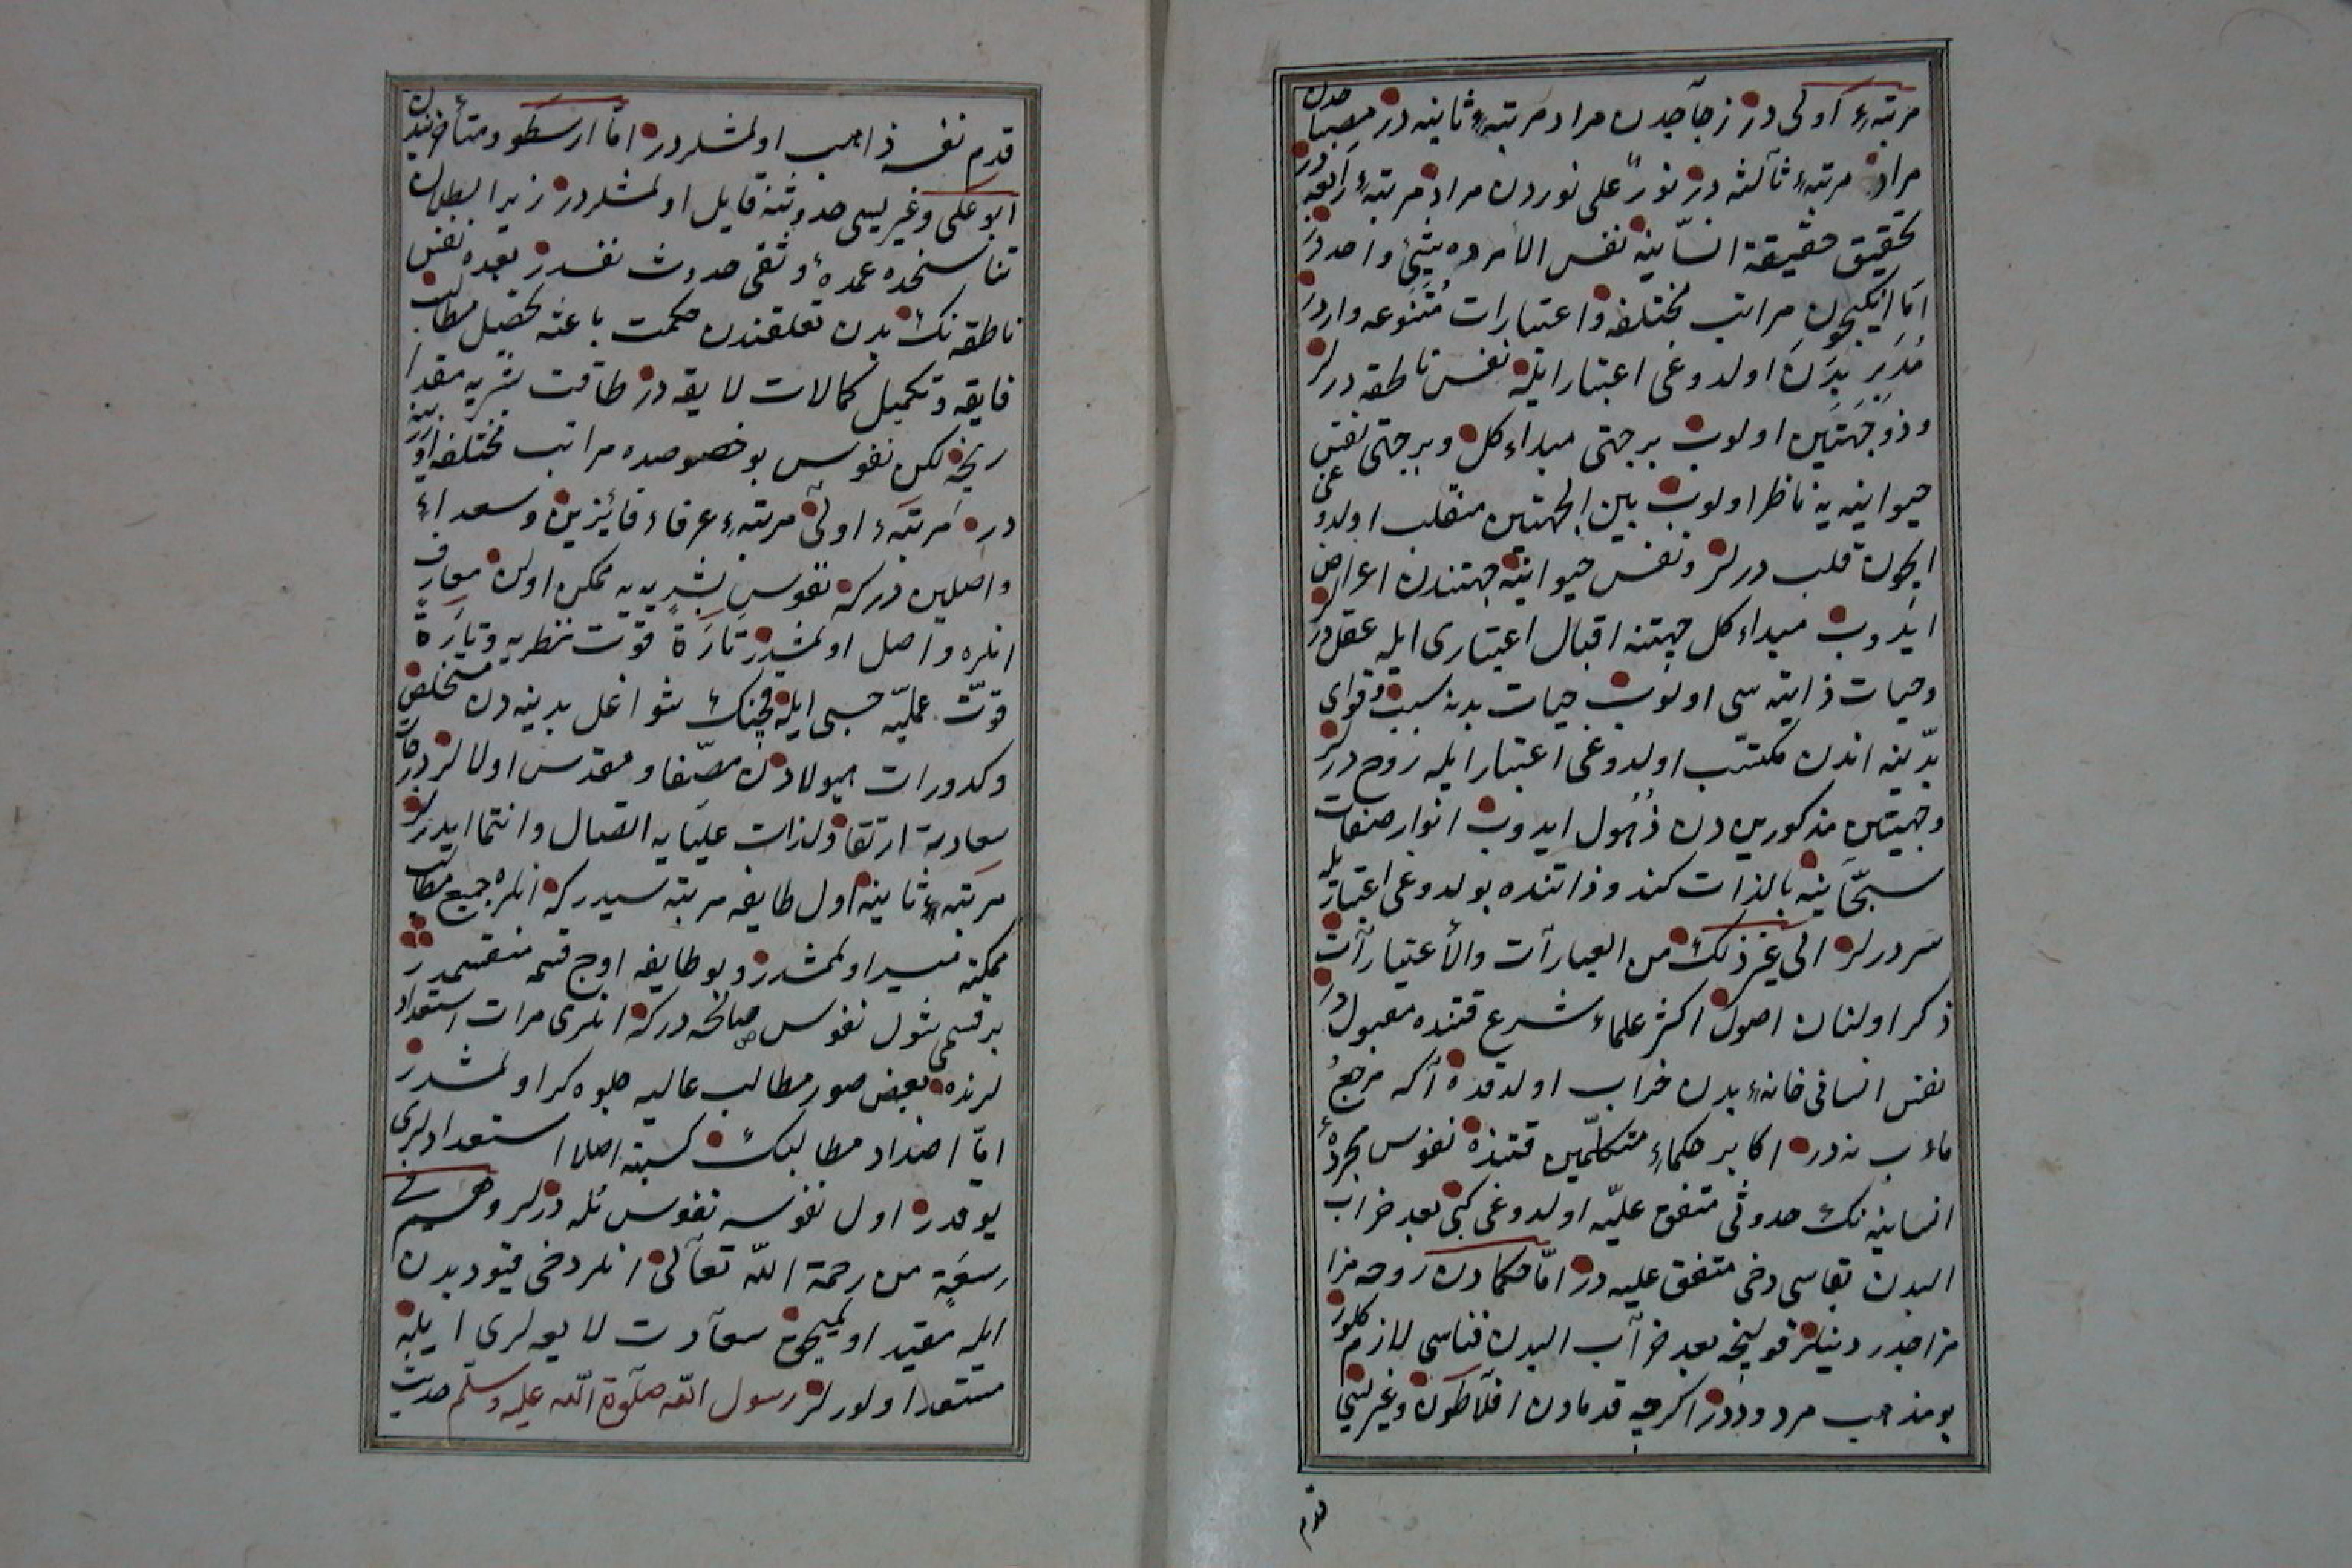 مرتبهٔ اولى در زجاجدن مراد مرتبهٔ ثانيه در مصباحدن
مراد مرتبهٔ ثالثه در نورٌ على نوردن مراد مرتبهٔ رابعه در
تحقيق حقيقة انسانيه نفس الامرده شيئ واحد در
اما ايكيچون مراتب مختلفه و اعتبارات متنوعه واردر
مُدَبِرِ بدَن اولدوغى اعتبار ايله نفس ناطقه درلر
و ذو جَهَتَين اولوب بر جهتى مبداء كل و بر جهتى نفس
حيوانيه يه ناظر اولوب بين الجهتين منقلب اولدوغى
ايچون قلب درلر و نفس حيوانيه جهتندن اعراض
ايدوب مبداء كل جهتنه اقبال اعتبارى ايله عقل درلر
و حيات ذاتيه سى اولوب حيات بدنه سبب و قواى
بدنيه اندن مكتسب اولدوغى اعتبار ايله روح درلر
و جهتين مذكورين دن ذُهُول ايدوب انوار صفات
سبحانيه بالذات كندو ذاتنده بولدوغى اعتبار يله
سر درلر الى غير ذلك من العبارات والأعتبارات
ذكر اولنان اصول اكثر علماء شرع قتنده مقبولدر
نفس انسانى خانهٔ بدن خراب اولدقده اكه مرجع
ماءب نه در اكابر حكماءِ متكلّمين قتنده نفوس مجردهٔ
انسانيه نك حدوثى متفق عليه اولدوغى كبى بعد خراب
البدن بقاسى دخى متفق عليه در امّا حكمادن روحه مزا
مزاجدر دينلر قولنجه بعد خراب البدن فناسى لازم كلور
بو مذهب مردوددر اكرچه قدمادن افلاطون و غيرليسى
قدم
قدم نفسه ذاهب اولمشلردر امّا ارسطو و متأخريندن
ابو على و غيرليسى حدوثنه قايل اولمشلردر زيرا ابطلان
تناسخده عمدهٔ وثقى حدوث نفسدر بعده نفس
ناطقه نك بدن تعلقندن حكمت باعثه تحصيل مطالب
فايقه و تكميل كمالات لايقه در طاقت بشريه مقدا
رنجه لكن نفوس بو خصوصده مراتب مختلفه اوزرينه
در مَرتبهٔ اولى مرتبهٔ عرفاء فائزين و سعداءِ
واصلين دركه نفوس بشريه يه ممكن اولان معارف
انلره واصل اولمشدر تارَة قوّت نظريه و تارَة
قوّت عمليّه حسبى ايله قچنك شواغل بدنيه دن متخلص
و كدورات هيولادن مصّفا و مقدس اولالر درجات
سعادته ارتقا و لذات عليايه اتصال و انتما ايدرلر
مرتبهٔ ثانيه اول طايفه مرتبه سيدركه انلره جميع مطالب
ممكنه ميسر اولمشدر و بو طايفه اوچ قسمه منقسمدر
بر قسمى شول نفوس صالحه دركه انلرى مرات استعداد
لرنده بعض صور مطالب عاليه جلوه كر اولمشدر
امّا اضداد مطالبك كسبنه اصلا استعدادلرى
يوقدر اول نفوسه نفوس بُله درلر و هم فى
سعَةٍ من رحمة اللّه تعالى انلر دخى قيود بدن
ايله مقيد اولميجق سعادت لايقه لرى ايله
مستعدا اولورلر رسول اللّه صلوة اللّه عليه و سلّم حديث